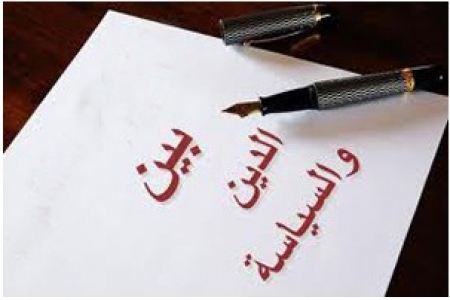 بين
الدين
والسياسة